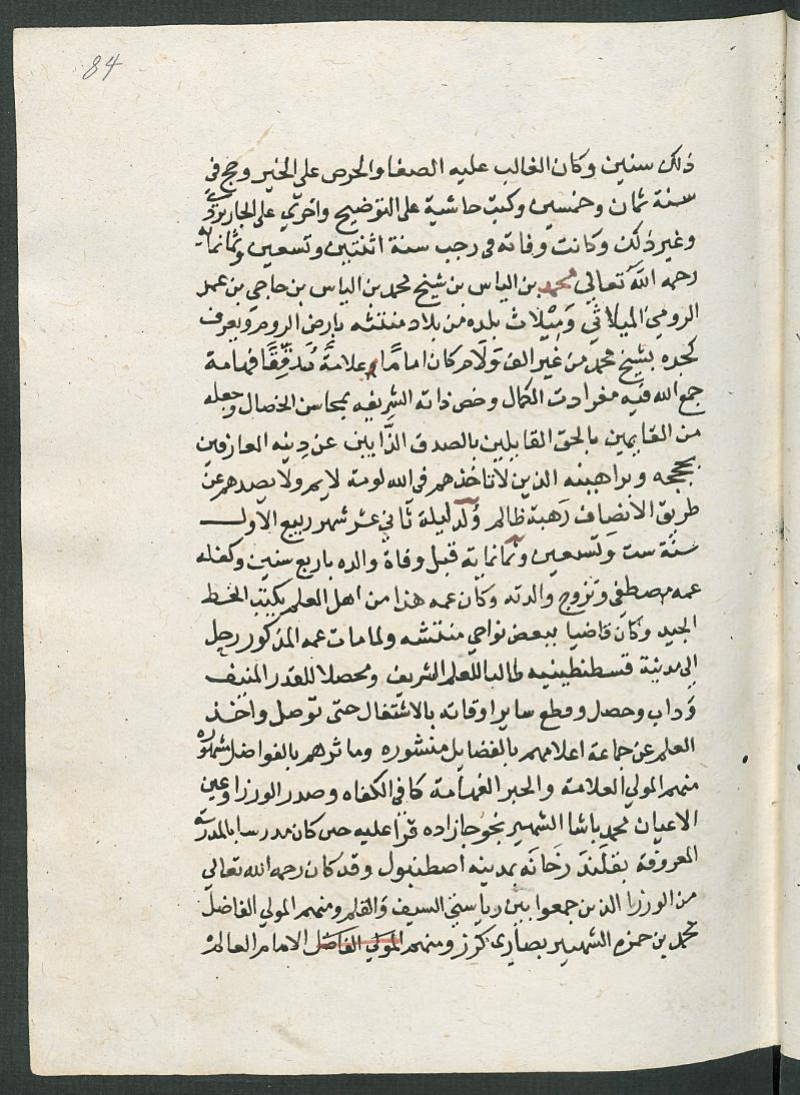 84
ذلك سنين وكان الغالب عليه الصفا والحرص على الخير وحج في
سنة ثمان وخمسين وكتب حاشية على التوضيح واخرى على الجاربردي
وغير ذلك وكانت وفاته في رجب سنة اثنتين وتسعين وثمانمائة
رحمه الله تعالى محمد بن الياس بن شيخ محمد بن الياس بن حاجي بن عمر
الرومي الميلاثي وميلاث بلده من بلاد منتشه بارض الروم ويعرف
كجده بشيخ محمد من غير الف ولام كان اماما علامة مدققا فهامة
جمع الله فيه مفرادت الكمال وخص ذاته الشريفه بمحاسن الخصال وجعله
من القايمين بالحق القايلين بالصدق الذابين عن دينه العارفين
بحججه وبراهينه الذين لا تاخذهم في الله لومة لايم ولا يصدهم عن
طريق الانصاف رهبة ظالم ولد ليلة ثاني عشر شهر ربيع الاول
سنة ست وتسعين وثمانماية قبل وفاة والده باربع سنين وكفله
عمه مصطفى وتزوج والدته وكان عمه هذا من اهل العلم يكتب الخط
الجيد وكان قاضيا ببعض نواحي منتشه ولما مات عمه المذكور رحل
الى مدينة قسطنطينيه طالبا للعلم الشريف ومحصلا للقدر المنيف
وداب وحصل وقطع ساير اوقاته بالاشتغال حتى توصل واخذ
العلم عن جماعة اعلامهم بالفضايل منشوره وماثرهم بالفواضل مشهوره
منهم المولى العلامة والحبر الفهامة كافي الكفاه وصدر الوزرا وعين
الاعيان محمد باشا الشهير بخوجا زاده قرا عليه حين كان مدرسا بالمدرسة
المعروفة بقلندر خانه بمدينه اصطنبول وقد كان رحمه الله تعالى
من الوزرا الذين جمعوا بين رياستي السيف والقلم ومنهم المولى الفاضل
محمد بن حمزه الشهير بصاري كرز ومنهم المولى الفاضل الامام العالم